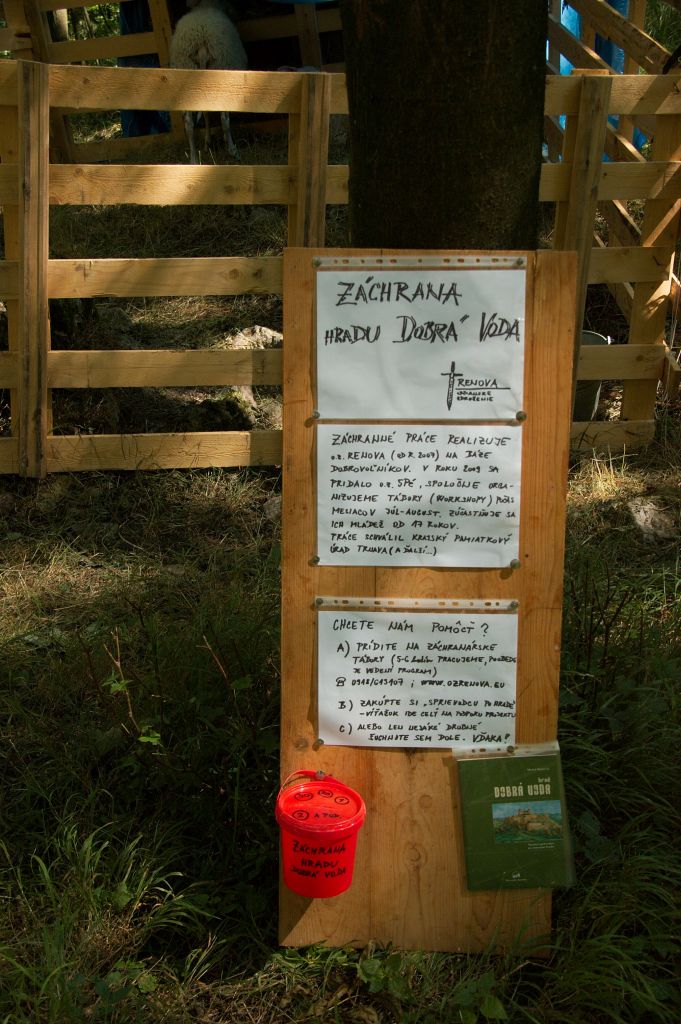 ZÁCHRANA
HRADU DOBRÁ VODA
RENOVA
OBČIANSKE
ZDRUŽENIE
ZÁCHRANNÉ PRÁCE REALIZUJE
o.z. RENOVA (OD R. 2007) NA BÁZE
DOBROVOĽNÍKOV. V ROKU 2009 SA
PRIDALO o.z. SPÉ, SPOLOČNE ORGA-
NIZUJEME TÁBORY (WORKSHOPY) POČAS
MESIACOV JÚL-AUGUST. ZÚČASTŇUJE SA
ICH MLÁDEŽ OD 17 ROKOV.
PRÁCE SCHVÁLIL KRAJSKÝ PAMIATKOVÝ
ÚRAD TRNAVA (A ĎALŠÍ...)
CHCETE NÁM POMÔCŤ?
A) PRÍDITE NA ZÁCHRANÁRSKE
TÁBORY (5-6 hodín PRACUJEME, POOBEDE
JE VEDENÝ PROGRAM)
0918/613107 ; www.OZRENOVA.EU
B) ZAKÚPTE SI „SPRIEVODCU PO HRADE"
-VÝŤAŽOK IDE CELÝ NA PODPORU PROJEKTU
C) ALEBO LEN NEJAKÉ DROBNÉ
SEM DOLE. VĎAKA!
2 A POD.
ZÁCHRANA
HRADU
DOBRÁ VODA
hrad
DOBRÁ VODA